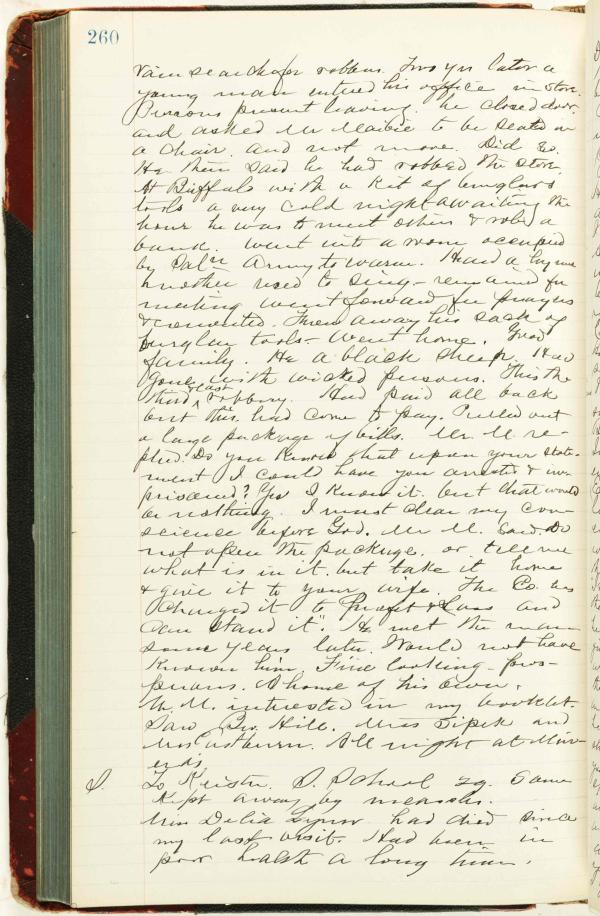 260
Vain search for robbers. Two yrs later a
young man entered his office in store.
Persons present leaving. he closed door.
and asked Mr Maibie to be seated in
a chair. and not move. Did so.
He then said he had robbed the store.
At Buffalo with a kit of burglars
tools a very cold night awaiting the
hour he was to meet others & rob a
bank. went into a room occupied
by Salv Army to warm. Heard a hymn
mother used to sing - remained for
meeting went forward for prayers
& converted. Threw away his sack of
burglar tools - went home. Good
family. He a black sheep. Had
gone with wicked persons. This the
third & last robbery. Had paid all back
but this. had come to pay. Pulled out
a large package of bills. Mr. M. re-
plied. Do you know that upon your state-
ment I could have you arrested & im-
prisoned? Yes I know it. but that would
be nothing. I must clear my con-
science before God. Mr M. said. Do
not open the package. or tell me
what is in it. but take it home
& give it to your wife. The Co. has
charged it to Profit & Loss and
can stand it". He met the man
some years later. Would not have
known him. Fine looking - pros-
perous. A home of his own.
M. M. interested in my booklet.
Saw Bro. Hill. Miss Tipek and
Mrs Washburn. All night at
S. To Keister. S. School 29. Some
kept away by measles.
Miss Delia had died since
my last visit. Had been in
poor health a long time.